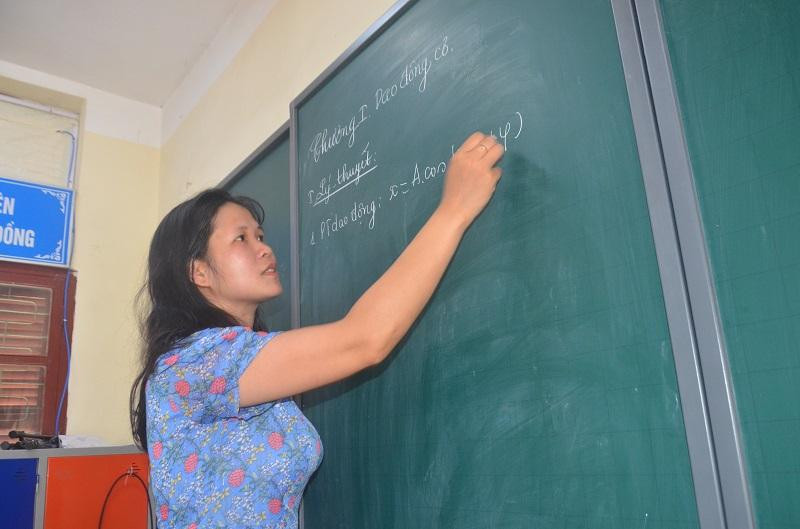 ỒNG
Chương I. Dao động cơ.
I. Lý thuyết:
1. PT dao động: x = A.cos( φ)